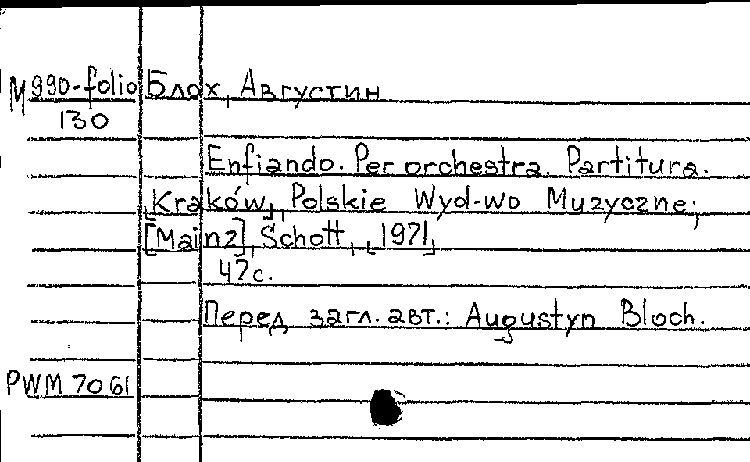 М 990-folio Блох, Августин
130
Enfiando. Per orchestra. Partitura.
[Kraków], Polskie Wyd-wo Muzyczne;
[Mainz], Schott, [1971]
47с.
Перед загл. авт.: Augustyn Bloch.
PWM 7061